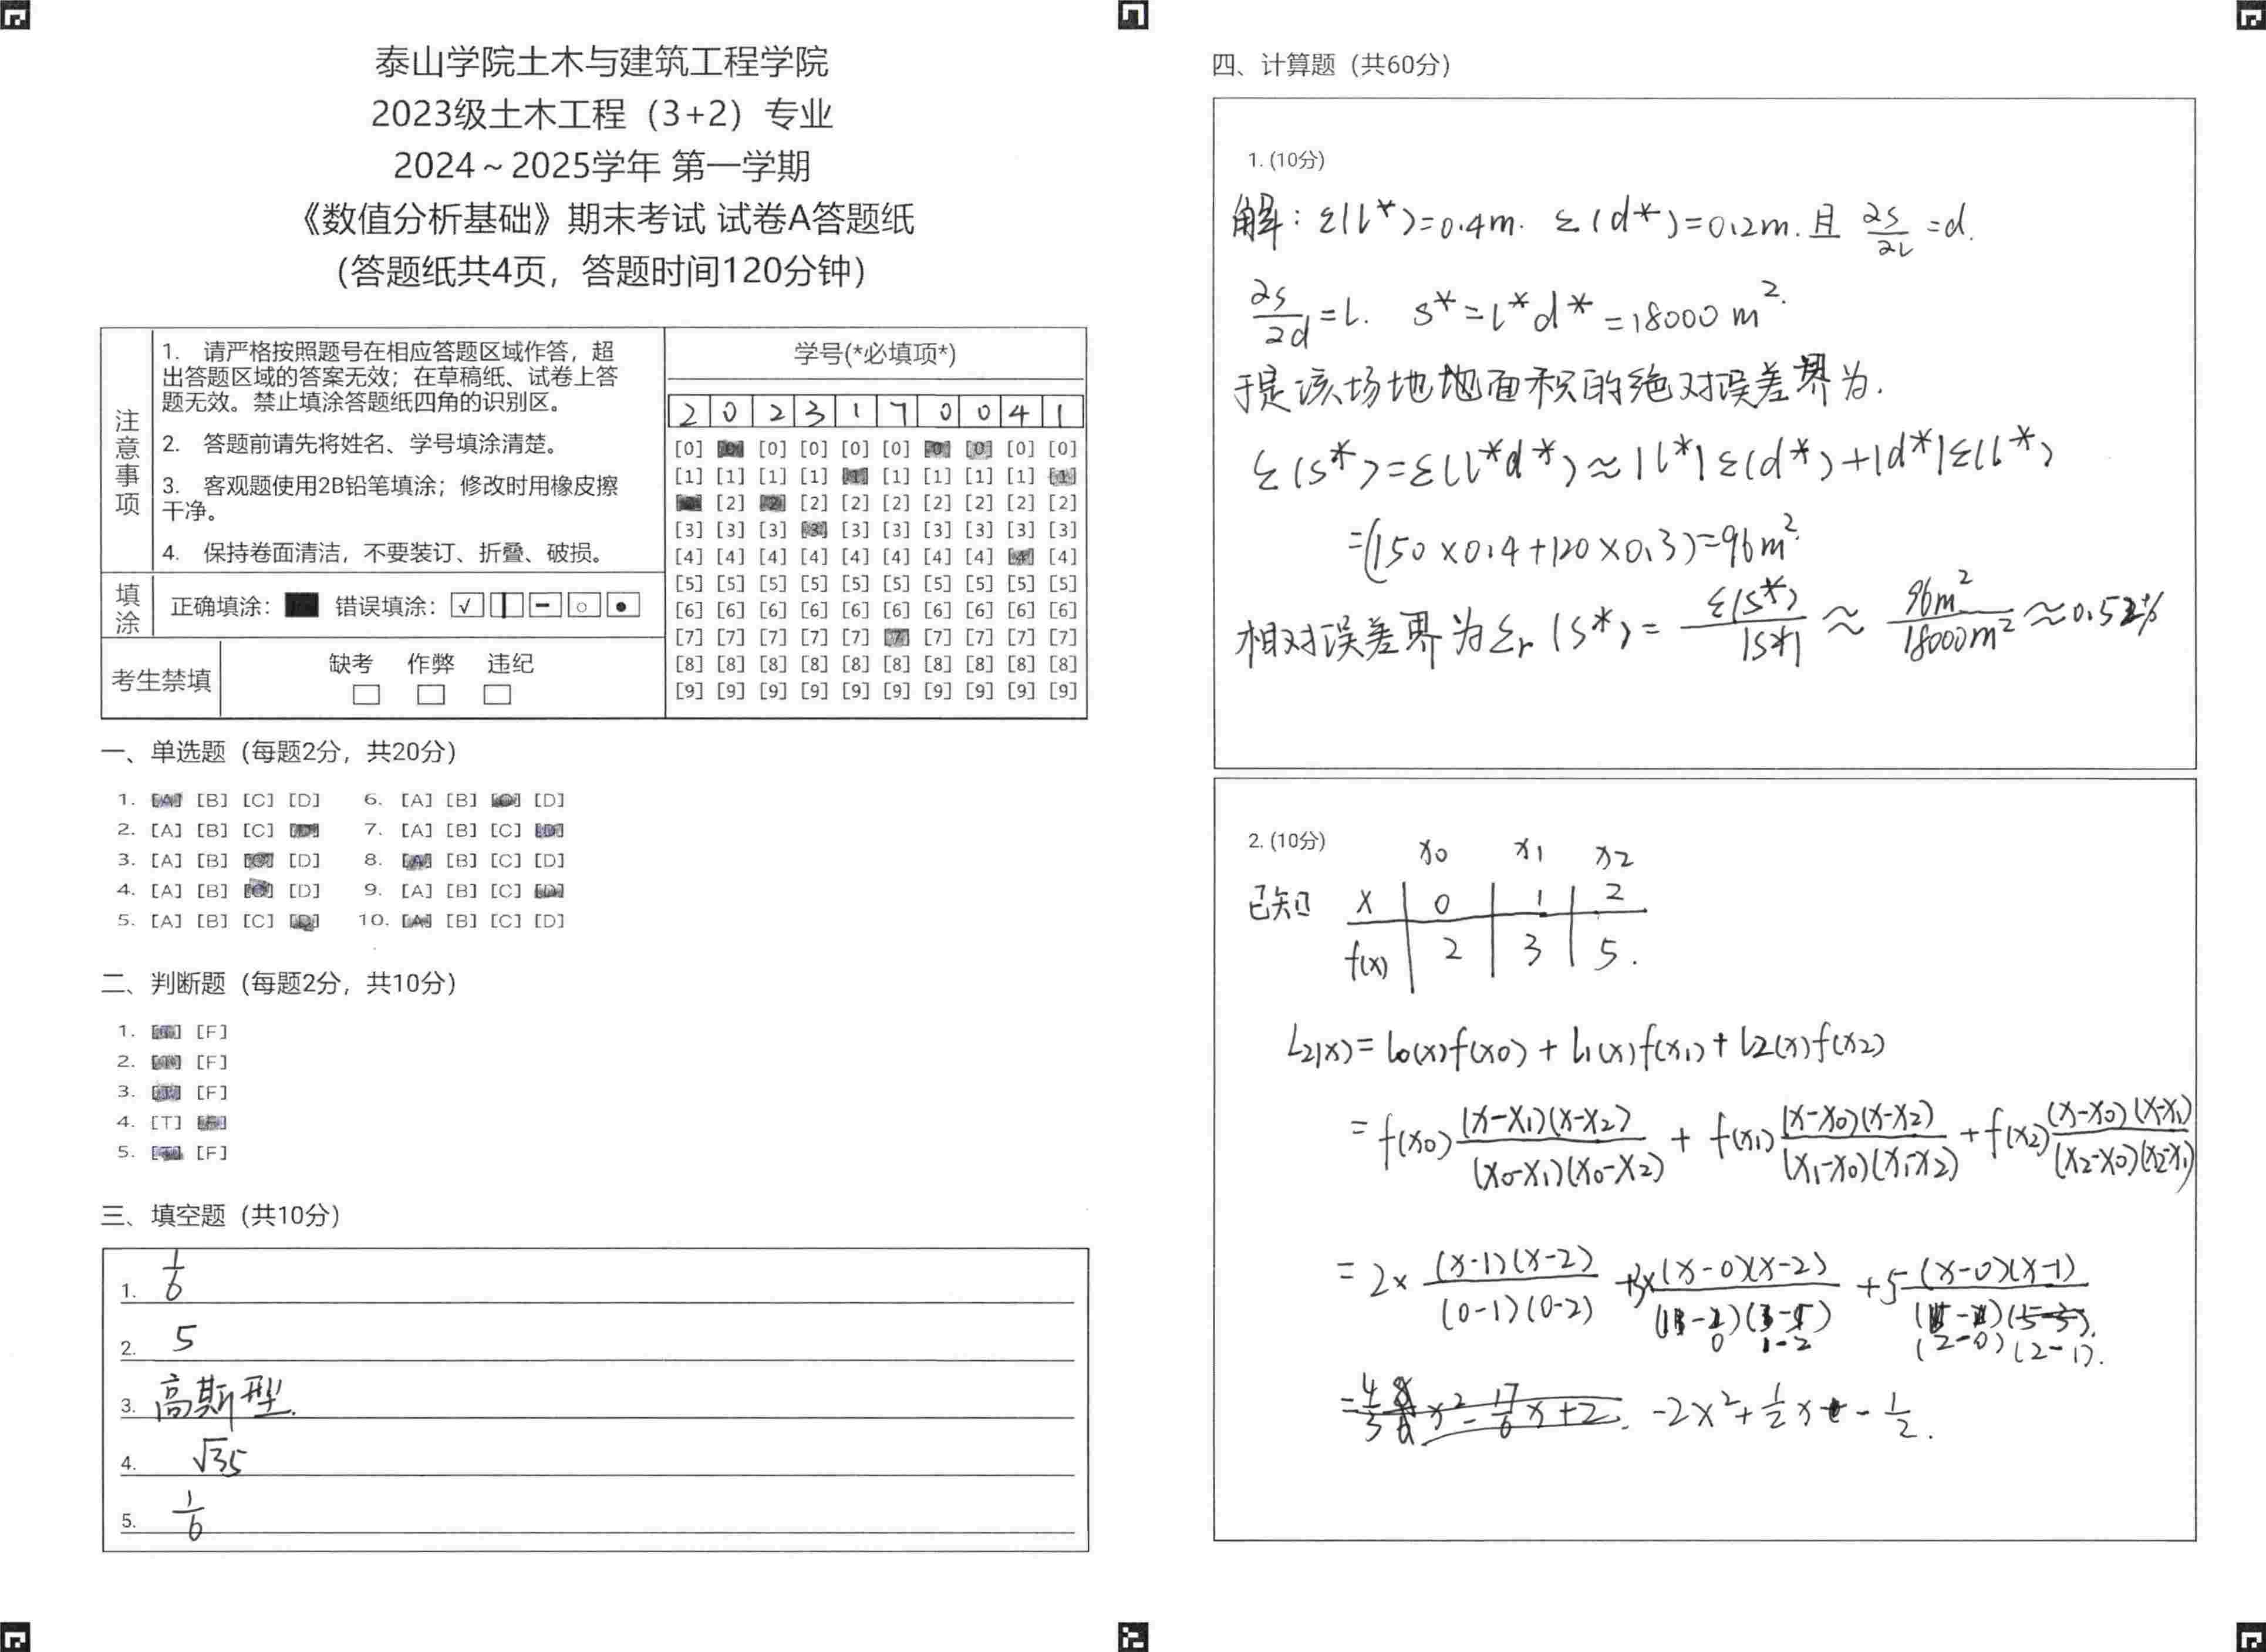 泰山学院土木与建筑工程学院
2023级土木工程（3+2）专业
2024～2025学年 第一学期
《数值分析基础》期末考试 试卷A答题纸
（答题纸共4页，答题时间120分钟）
注意事项
1. 请严格按照题号在相应答题区域作答，超
出答题区域的答案无效；在草稿纸、试卷上答
题无效。禁止填涂答题纸四角的识别区。
2. 答题前请先将姓名、学号填涂清楚。
3. 客观题使用2B铅笔填涂；修改时用橡皮擦
干净。
4. 保持卷面清洁，不要装订、折叠、破损。
填涂 正确填涂： 错误填涂：
考生禁填 缺考 作弊 违纪
学号(*必填项*)
2 0 2 3 1 7 0 0 4 1
[0] [0] [0] [0] [0] [0] [0] [0] [0]
[1] [1] [1] [1] [1] [1] [1] [1] [1] [1]
[2] [2] [2] [2] [2] [2] [2] [2] [2]
[3] [3] [3] [3] [3] [3] [3] [3] [3] [3]
[4] [4] [4] [4] [4] [4] [4] [4] [4] [4]
[5] [5] [5] [5] [5] [5] [5] [5] [5] [5]
[6] [6] [6] [6] [6] [6] [6] [6] [6] [6]
[7] [7] [7] [7] [7] [7] [7] [7] [7] [7]
[8] [8] [8] [8] [8] [8] [8] [8] [8] [8]
[9] [9] [9] [9] [9] [9] [9] [9] [9] [9]
一、单选题（每题2分，共20分）
1. [A] [B] [C] [D] 6. [A] [B] [C] [D]
2. [A] [B] [C] [D] 7. [A] [B] [C] [D]
3. [A] [B] [C] [D] 8. [A] [B] [C] [D]
4. [A] [B] [C] [D] 9. [A] [B] [C] [D]
5. [A] [B] [C] [D] 10. [A] [B] [C] [D]
二、判断题（每题2分，共10分）
1. [T] [F]
2. [T] [F]
3. [T] [F]
4. [T] [F]
5. [T] [F]
三、填空题（共10分）
1. 1/6
2. 5
3. 高斯型.
4. √35
5. 1/6
四、计算题（共60分）
1. (10分)
解：ε(l*)=0.4m. ε(d*)=0.2m. 且 ∂s/∂l =d.
∂s/∂d =l. s*=l*d*=18000 m².
于是该场地地面积的绝对误差界为.
ε(s*)=ε(l*d*)≈|l*|ε(d*)+|d*|ε(l*)
=(150×0.4+120×0.3)=96m².
相对误差界为εr(s*)= ε(s*)/|s*| ≈ 96m²/18000m² ≈0.52%
2. (10分)
x0 x1 x2
已知 x 0 1 2
f(x) 2 3 5.
L2(x)=l0(x)f(x0)+l1(x)f(x1)+l2(x)f(x2)
=f(x0) (x-x1)(x-x2)/(x0-x1)(x0-x2) + f(x1) (x-x0)(x-x2)/(x1-x0)(x1-x2) + f(x2) (x-x0)(x-x1)/(x2-x0)(x2-x1)
=2× (x-1)(x-2)/(0-1)(0-2) +3× (x-0)(x-2)/(1-0)(1-2) +5 (x-0)(x-1)/(2-0)(2-1).
= -2x²+1/2 x - 1/2.